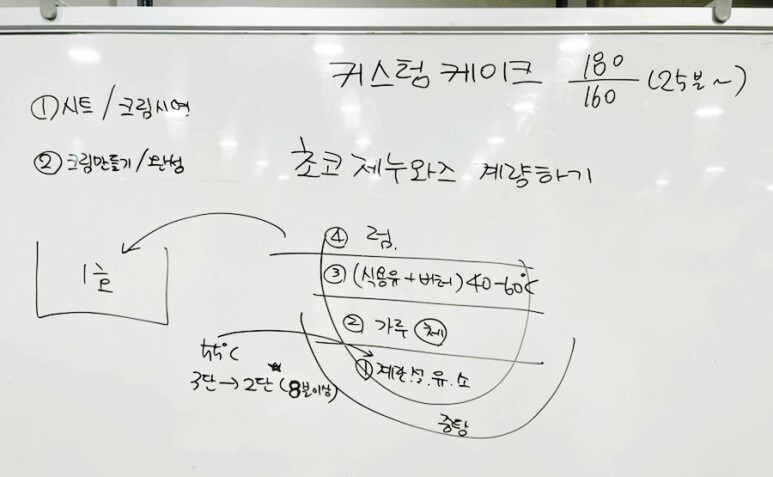 커스텀 케이크 180/160 (25분~)
① 시트/크림시연
② 크림만들기/완성
초코 제누와즈 계량하기
④ 럼.
③ (식용유+버터) 40-60℃
1호
② 가루 (체)
55℃
① 계란.설.유.소
3단→2단 (8분이상)
중탕